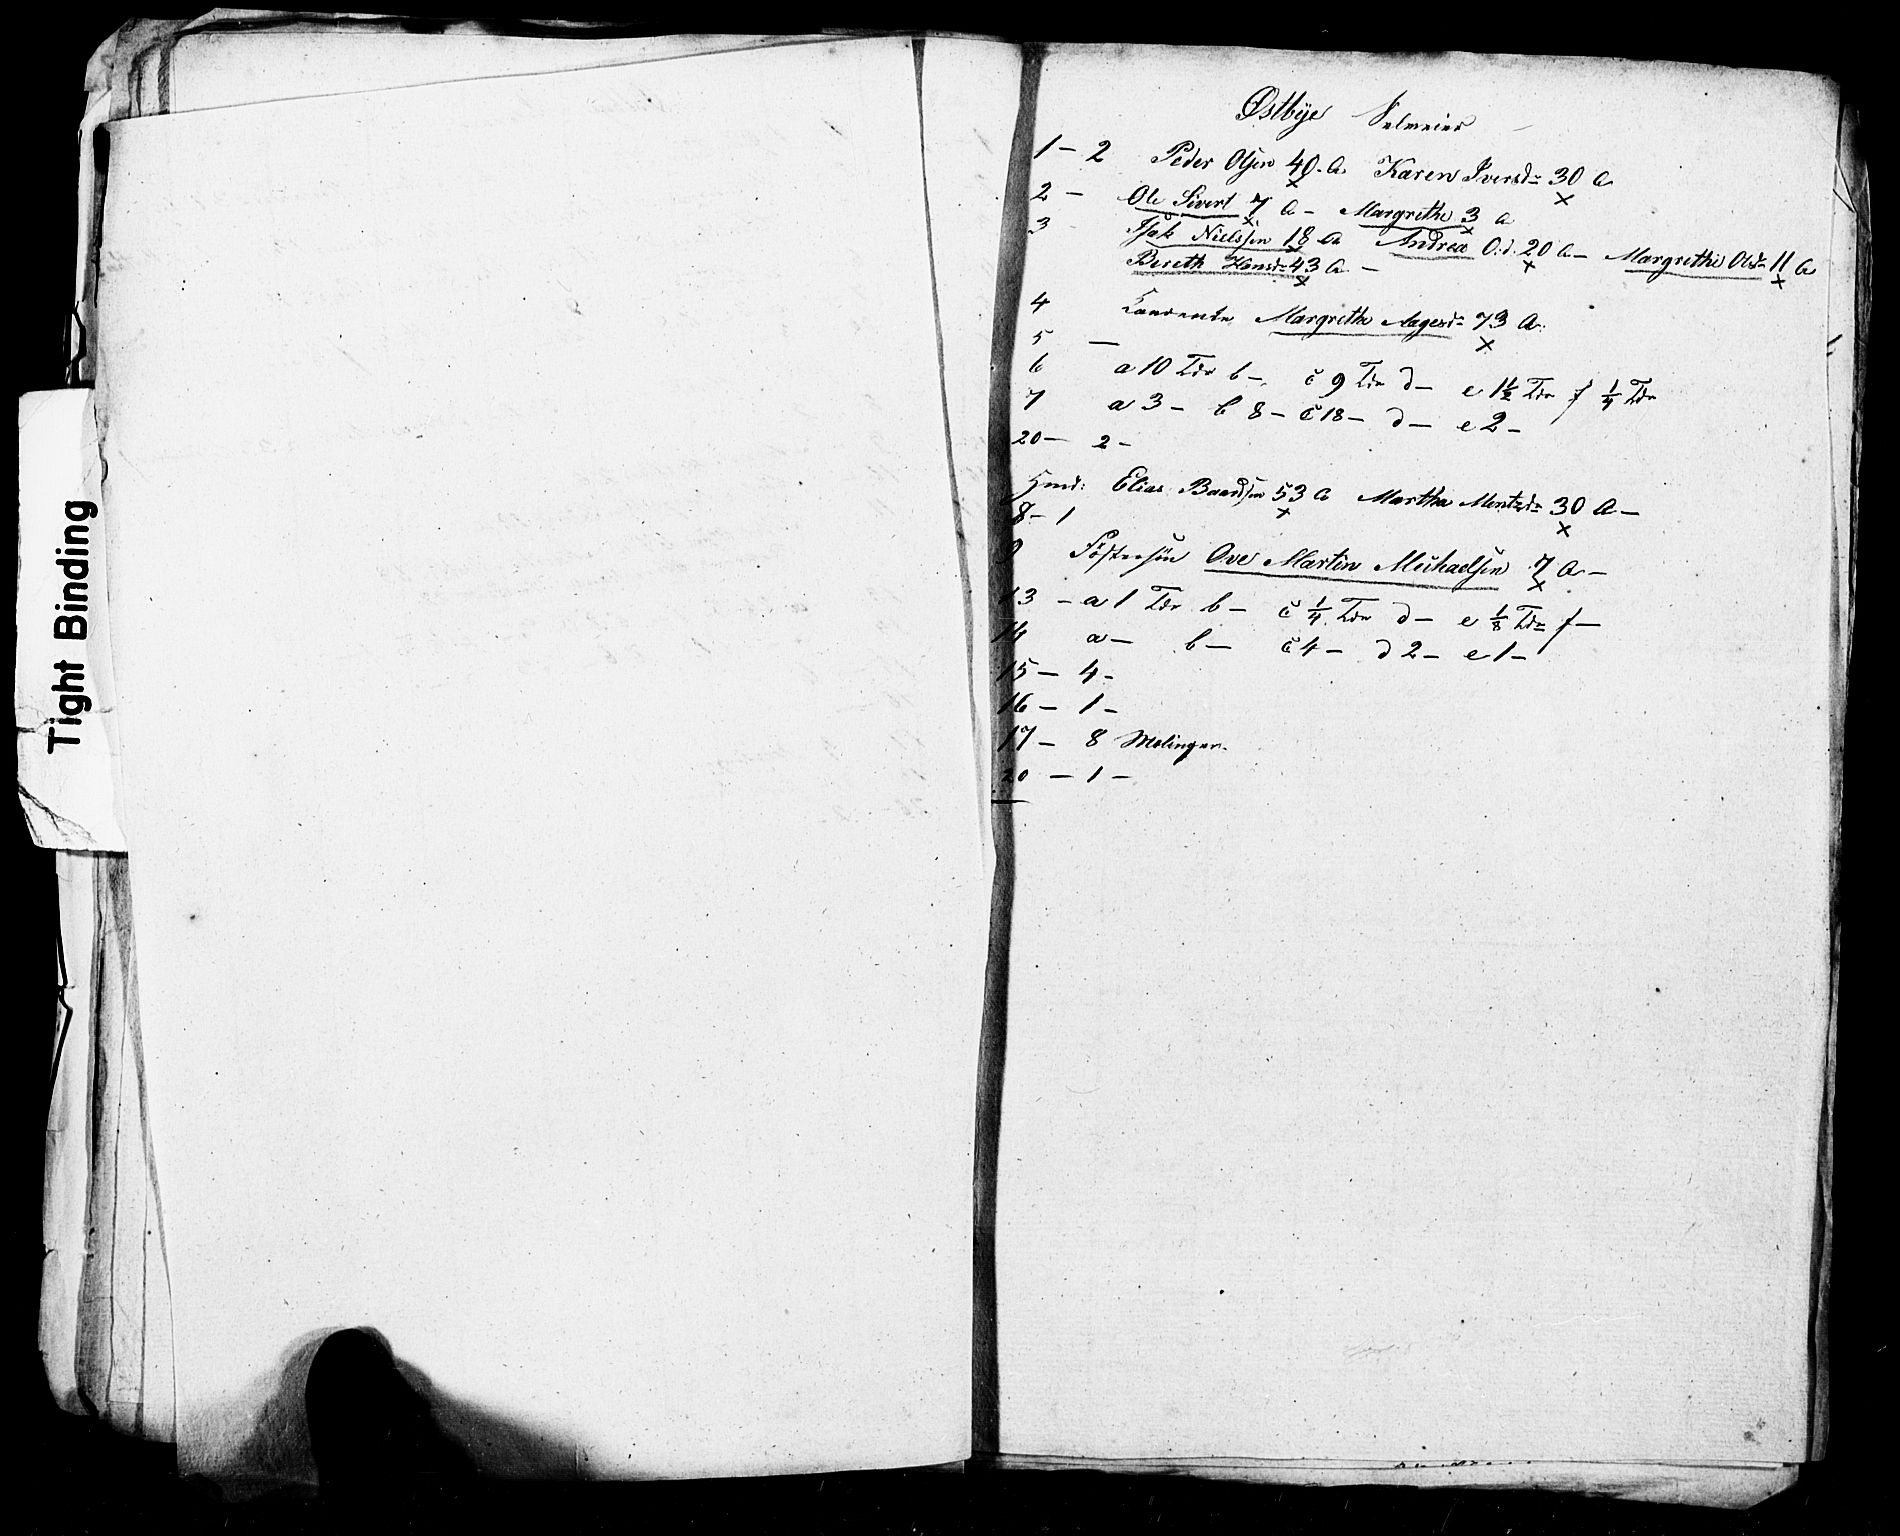 Tight Binding
Østbÿe Selveier
1 – 2 Peder Olsen 40. A Karen Iversd: 30 A
2 – Ole Sivert 7 A – Margrethe 3 A
3 Isak Nielssen 18 A Andrea O.d. 20 A – Margrethe Olsd: 11 A
Bereth Hansd: 43 A –
4 Margrethe Aagesd: 73 A.
5 –
6 a 10 Tdr b – c 9 Tdr d – e 1½ Tdr f ¼ Tdr
7 a 3 – b 8 – c 18 – d – e 2 –
20 – 2 –
Huusm: Elias Baardsen 53 A Martha Mentzd: 30 A –
8 – 1
9 Fostersøn Ove Martin Michaelsen 7 A –
13 – a 1 Tdr b – c ¼ Tdr d – e ⅛ Tdr f –
14 a – b – c 4 – d 2 – e 1 –
15 – 4 –
16 – 1 –
17 – 8 Melinger.
20 – 1 –